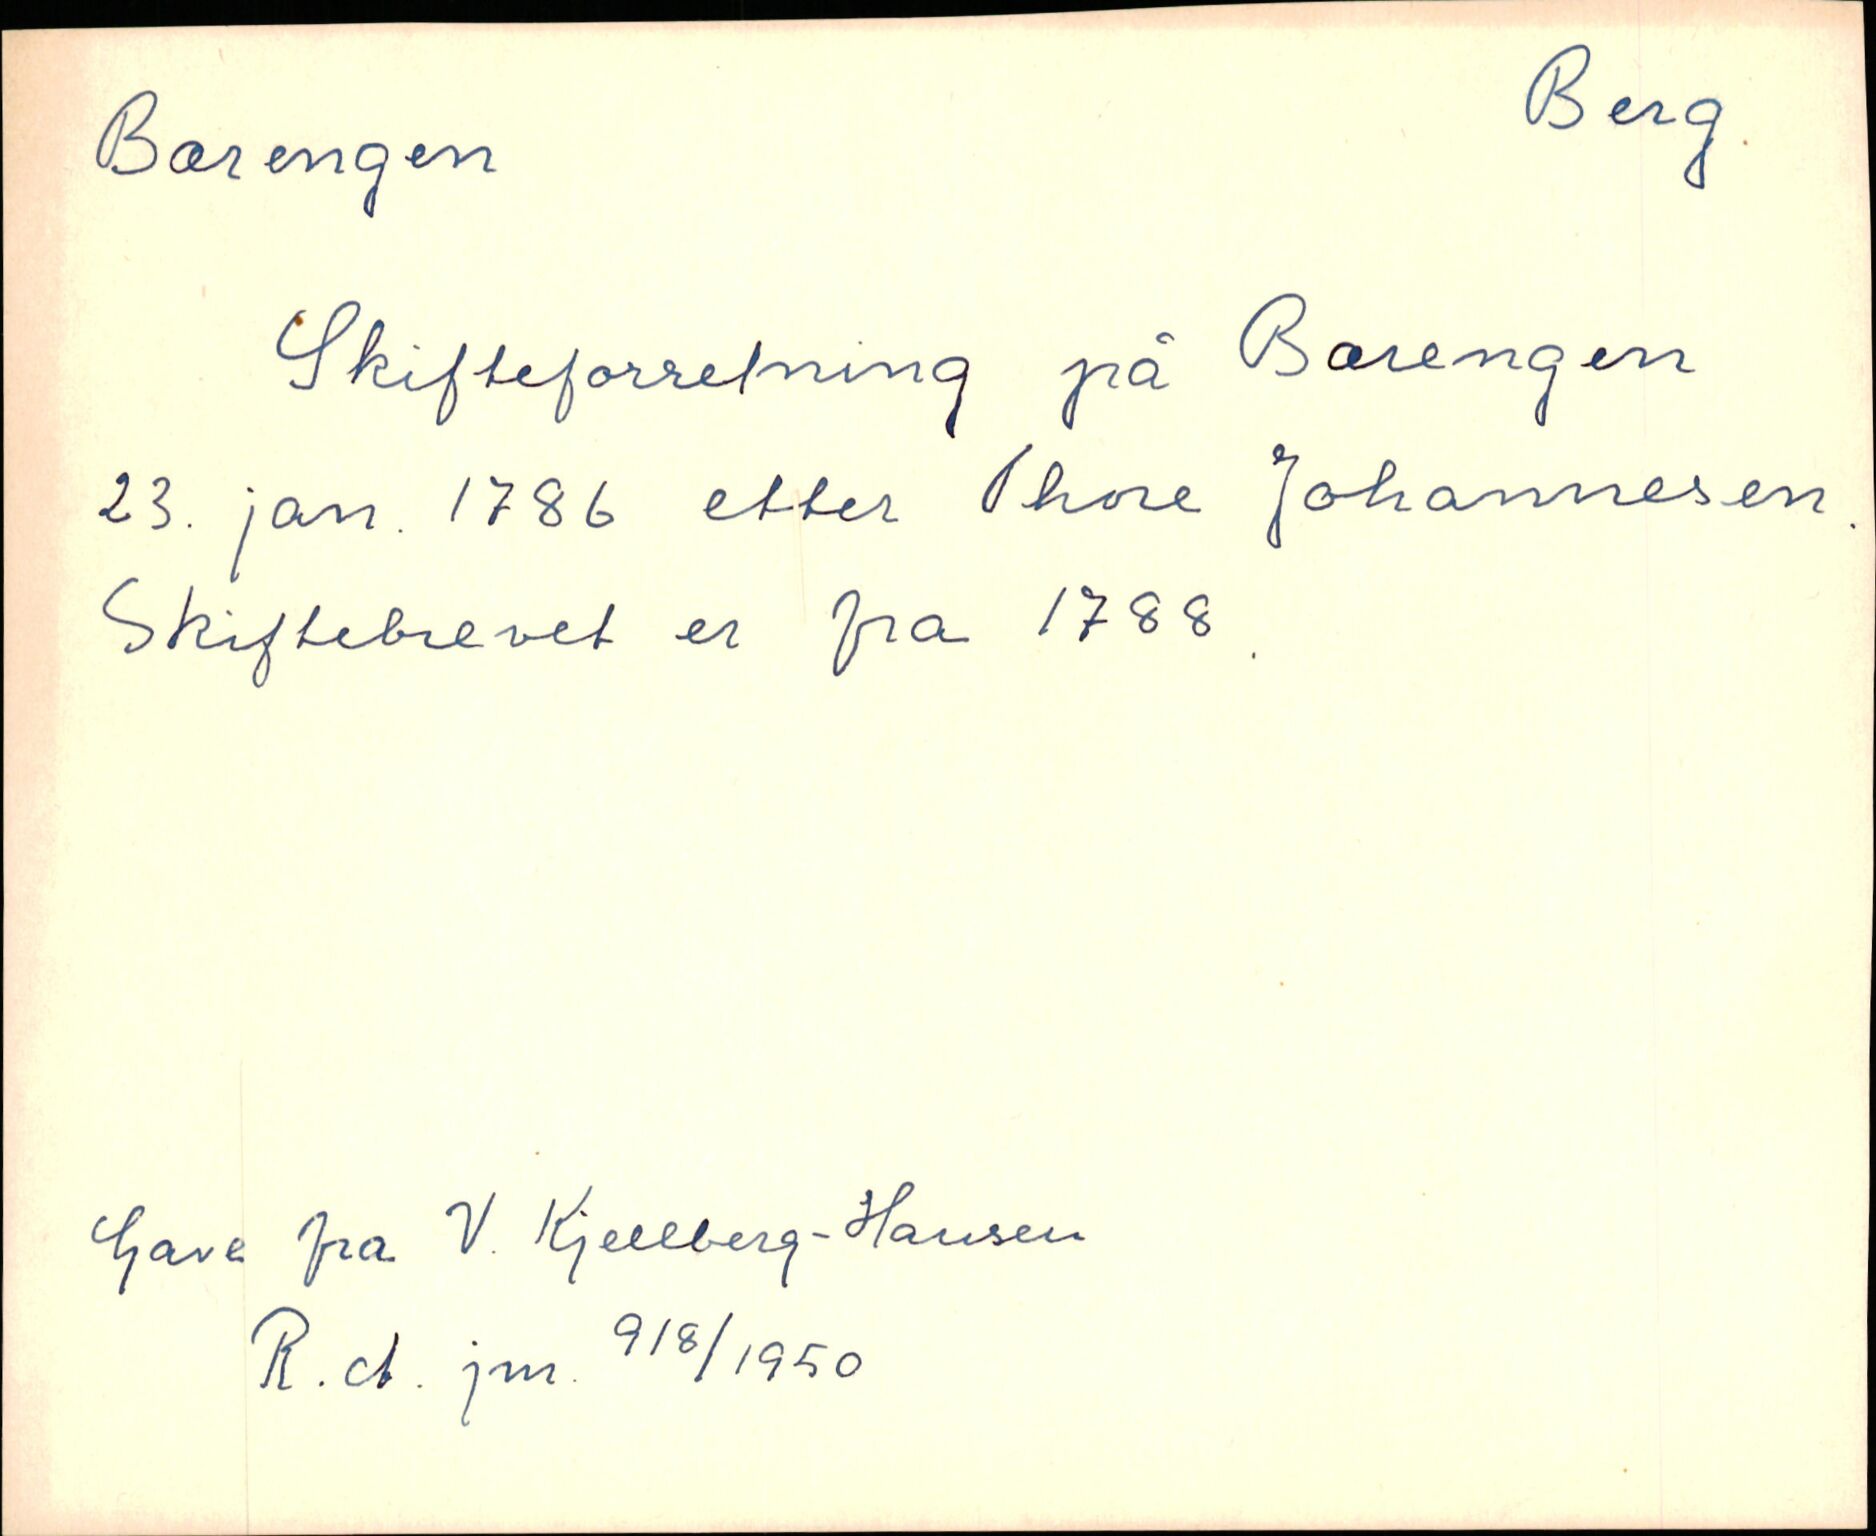 Bærengen
Berg.
Skifteforretning på Bærengen
23. jan. 1786 etter Thore Johannesen.
Skiftebrevet er fra 1788.
Gave fra V. Kjellberg-Hansen
R.A. jnr. 918/1950